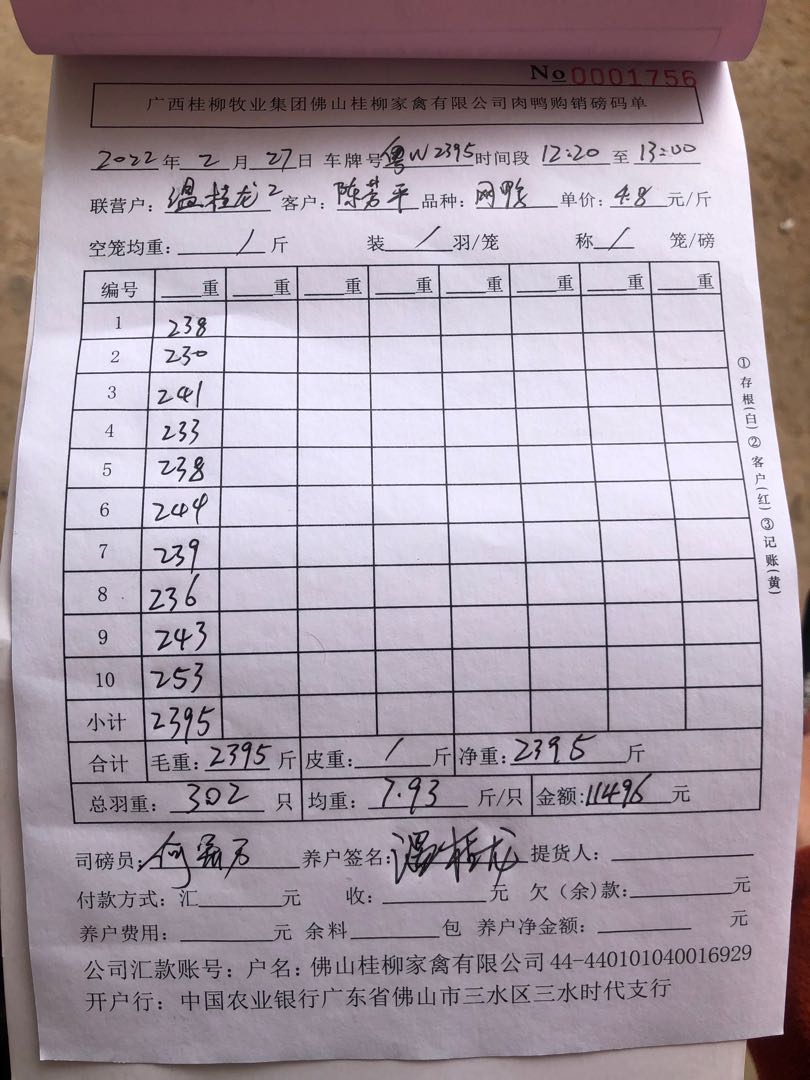 No 0001756
广西桂柳牧业集团佛山桂柳家禽有限公司肉鸭购销磅码单
2022年2月27日 车牌号粤W2395时间段12:20至13:00
联营户:温桂龙2 客户:陈芳平 品种:网鸭 单价:4.8元/斤
空笼均重:/斤 装/羽/笼 称/笼/磅
编号 重 重 重 重 重 重 重 重
1 238
2 230
3 241
4 233
5 238
6 244
7 239
8 236
9 243
10 253
小计 2395
合计 毛重:2395斤 皮重:/斤 净重:2395斤
总羽重:302只 均重:7.93斤/只 金额:11496元
司磅员: 养户签名:温桂龙 提货人:
付款方式:汇 元 收: 元 欠(余)款: 元
养户费用: 元 余料 包 养户净金额: 元
公司汇款账号:户名:佛山桂柳家禽有限公司44-440101040016929
开户行:中国农业银行广东省佛山市三水区三水时代支行
①存根(白)②客户(红)③记账(黄)